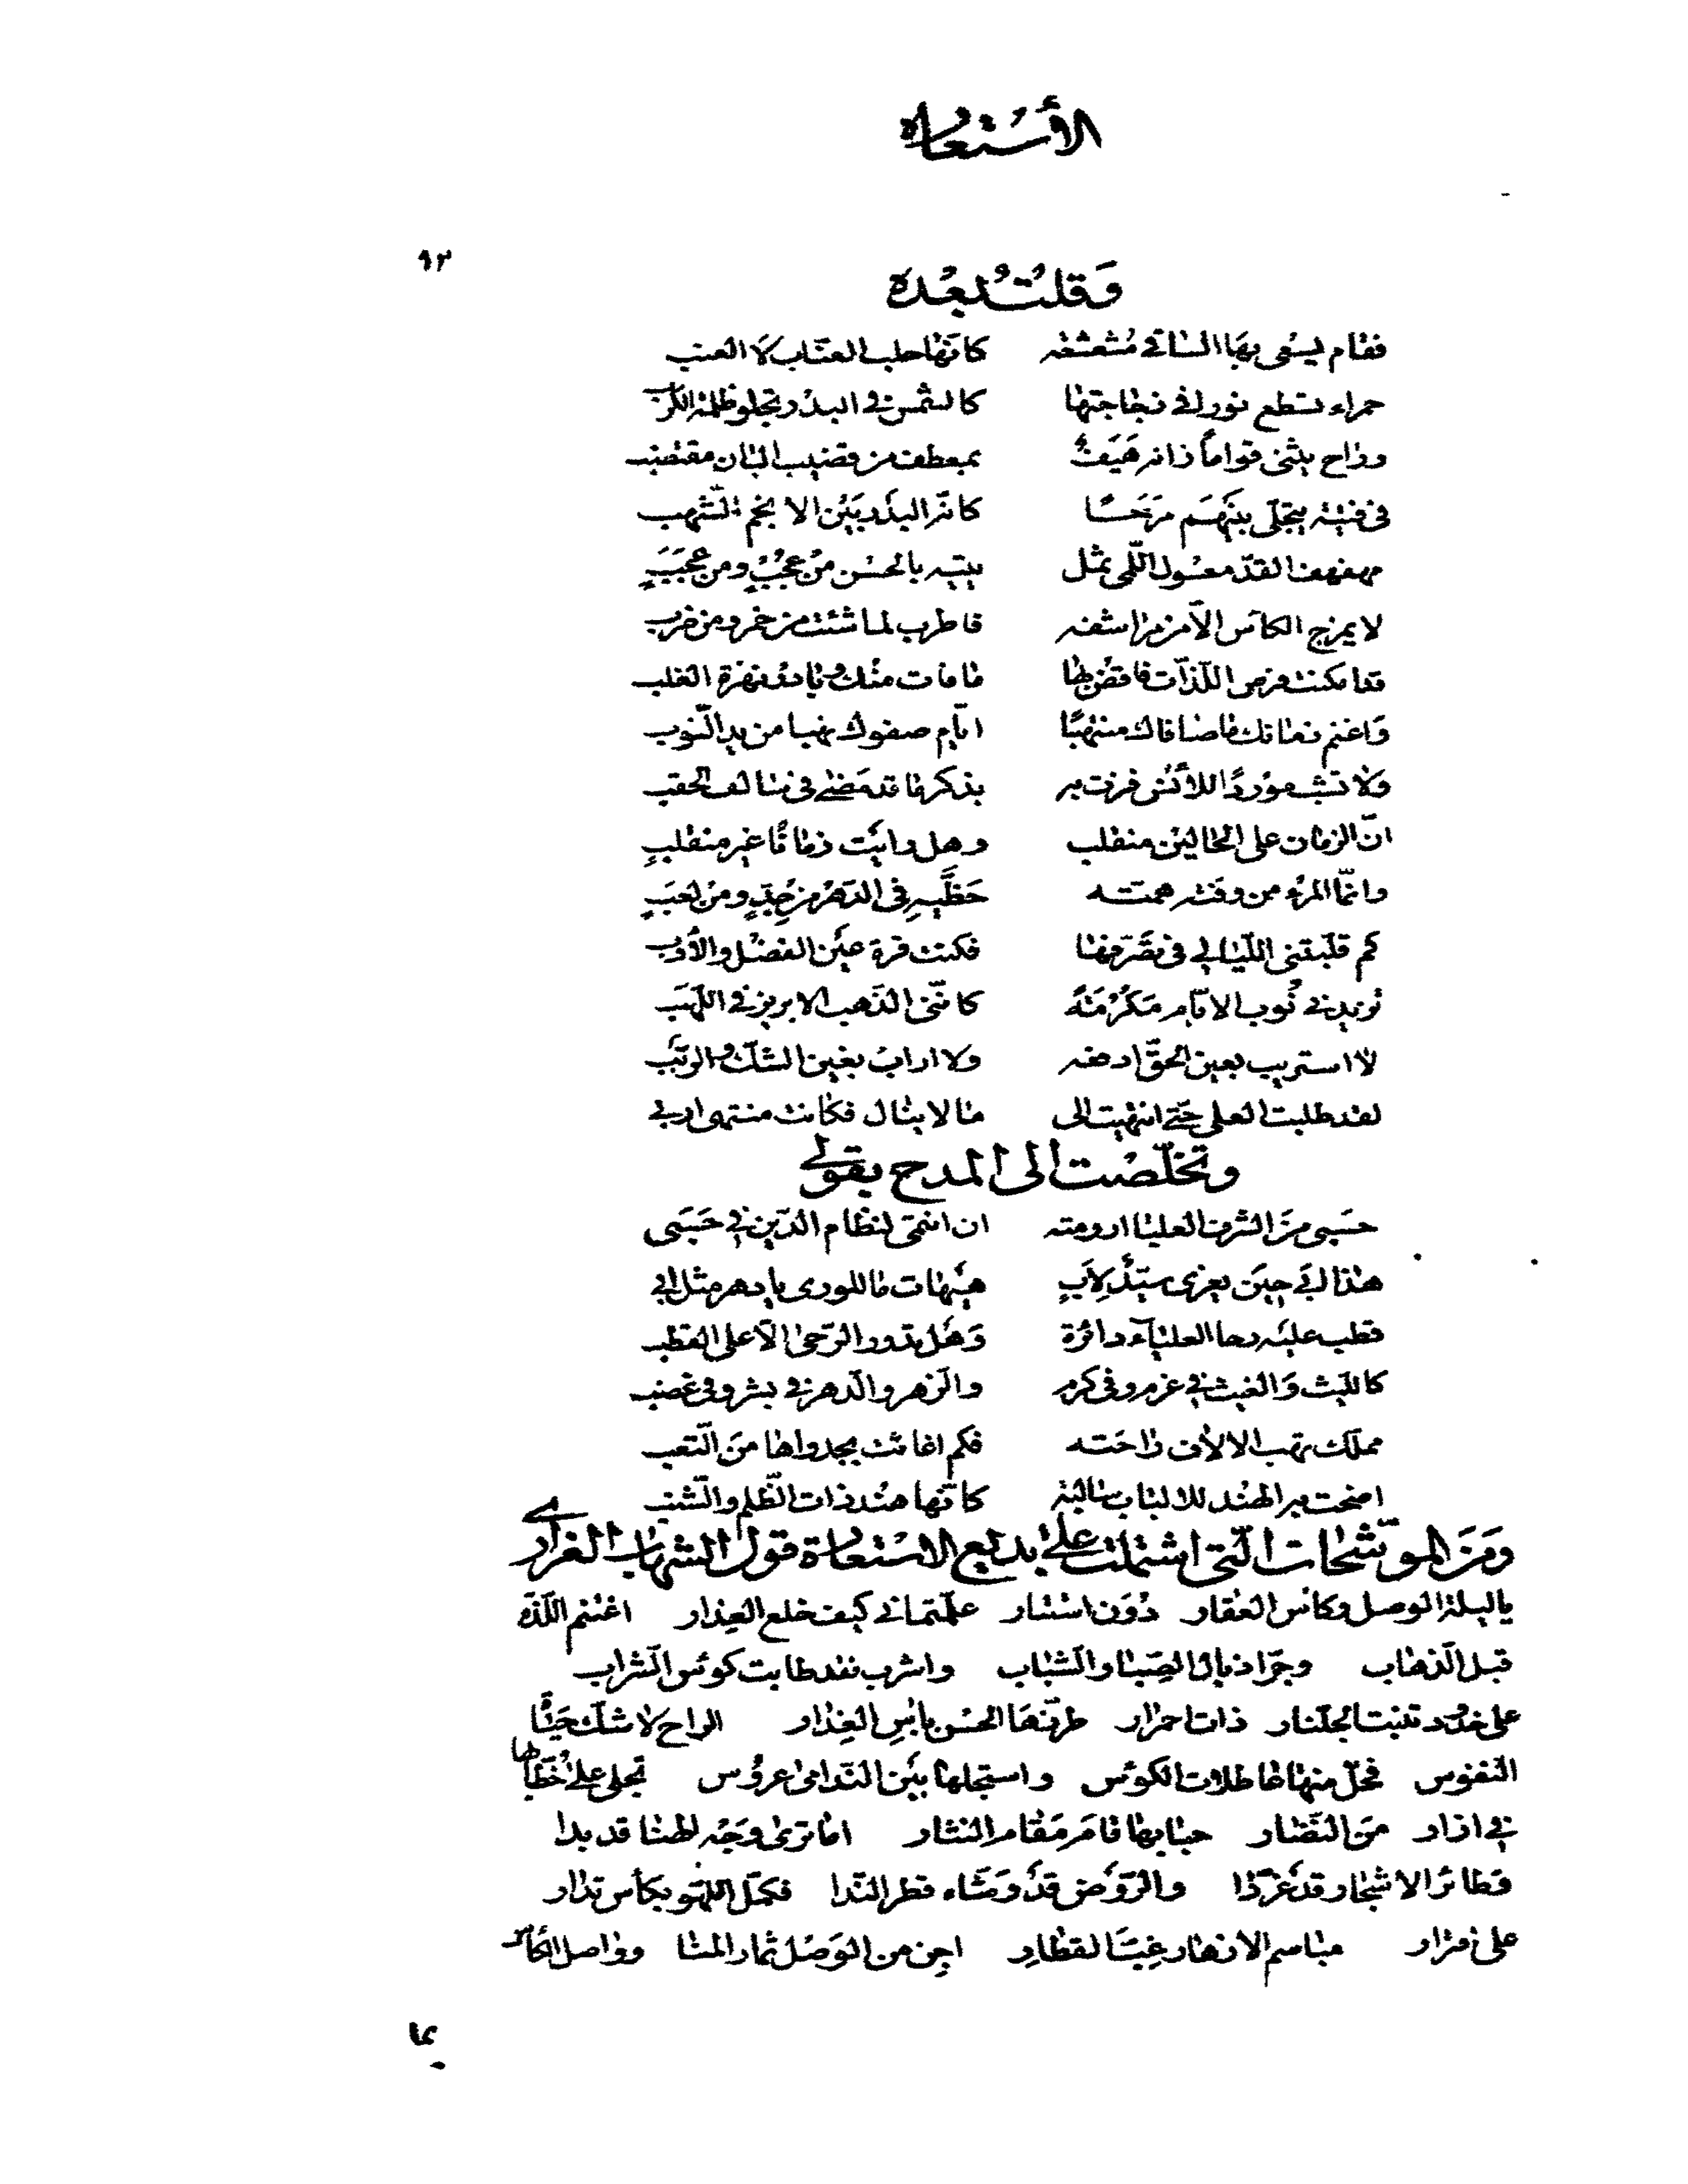 الأستعارة
٩٢
وَقلتُ بعْده
فقام يسْعى بهَا الساقي مُشعشعة كانّها حلب العنّاب لَا العنب
حمراء تسطع نورا في زجاجتها كالشمس في البدر تجلو ظلمة الكرب
وراح يثنى قواماً زانه هَيَفٌ بمعطف من قضيب البان مقتضب
فى فتية يتجلّى بينَهم مَرَحًا كانّه البدر بَيْن الانجم الشّهب
مهفهف القدّ معسُول اللّمى ثمل يتيه بالحسْن منْ عجُبٍ ومن عجَبَ
لا يمزج الكاس الاّ من مراشفه فاطرب لما شئت من خمر ومن ضرب
قد امكنت فرص اللذّات فاقض بها ما فات منْك وبادرْ نهزة الغلب
وَاغنم زمانك ما صافاك منتهبًا ايّام صفوك نهبا من يد النّوب
ولا تشب موْردًا للأنس فزت به بذكر ما قد مَضى فى سالف الحقب
انّ الزمان على الحالين منقلب وهل رايْت زمانًا غير منقلبٍ
وانمّا المرء من وفته همّته حَظَّيهِ فى الدّهْر من جِدٍّ ومنْ لعَبٍ
كم قلّبتنى اللّيالي فى تصَرّفها فكنت قرة عيْن الفضْل والأدب
تزيدني نُوب الايّام مَكرُمَةً كانّنى الذّهب الابريز في اللّهَب
لا استريب بعين الحقّ ادفعه ولا ارابُ بغين الشكّ والريَب
لقد طلبت العلى حتّى انتهيت الى ما لا ينال فكانت منتهى اربي
وتخلّصْت الى المدح بقولي
حسَبى منَ الشرف العليا ارومته ان انتمى لنظام الدّين في حَسَبى
هذا ابي حين يعزى سيّدٌ لِاَبٍ هيْهات ما للورى يا دهر مثل ابي
قطب عليْه رحا العلياَء دائرة وَهَل تدور الرّحى الّا على القطب
كالليث وَالغيث في عزم وفى كرم والزهر والدهر في بشر وفى غضب
مملّك تهب الالاف راحَته فكم اغاثت بجدواها منَ التّعب
اضحت به الهند للالباب سالبة كانّها هنْد ذات الظّلم والشّنب
وَمنَ الموشّحات الّتى اشتملت على بديع الاسْتعارة قول الشهاب العزازي
يا ليلة الوصل وكاْس العقار دُوَن استتار علّمتماني كيف خلع العِذار اغتنم اللّذه
قبل الذهاب وجرّ اذيال الصِبا والشّباب واشرب فقد طابت كوئس الشراب
على خدود تنبت الجلنار ذات احمرار طرّزهَا الحسْن باْسِ العِذار الراح لا شك حَياةُ
النّفوس فحلّ منها عاطلات الكوئس واستجلها بيْن النّدامى عروُس تجلى على خطّابها
في ازار منَ النّضار حبابها قامَ مَقام النثار اما ترى وجَهْ الهنا قد بدا
وطائر الاشجار قد غرّدا والرّوْض قدْ وَشّاه قطر النّدا فكمّل اللهّو بكأس تدار
على افترار مباسم الازهار غِبّ القطارِ اجن من الوَصْل ثمار المنا وواصل الكأس
بما